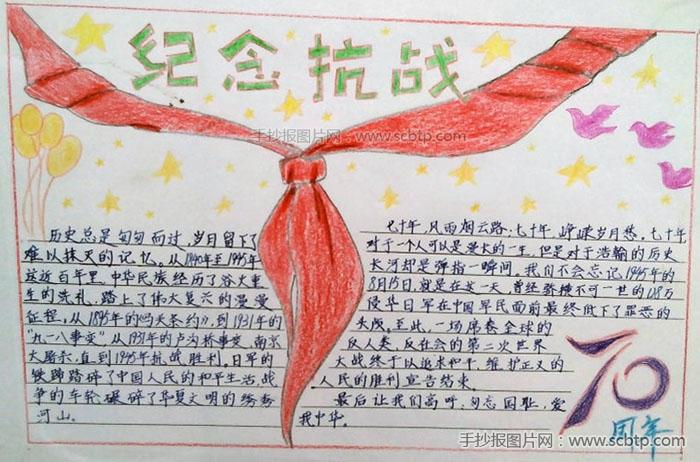 纪念抗战
手抄报图片网：www.scbtp.com
历史总是匆匆而过，岁月留下了
难以抹灭的记忆。从1840年至1945年
这近百年里，中华民族经历了
的洗礼，踏上了伟大复兴的漫漫
征程，从1895年的《马关条约》，到1931年的
“九一八事变”从1937年的卢沟桥事变、南京
大屠杀，直到1945年抗战胜利。日军的
铁蹄踏碎了中国人民的和平生活，战
争的车轮碾碎了华夏文明的锦秀
河山。
七十年，风雨烟云路，七十年，峥嵘岁月愁。七十年，
对于一个人可以是漫长的一生，但是对于浩翰的历史
长河却是弹指一瞬间，我们不会忘记1945年的
8月15日，就是在这一天，曾经骄横不可一世的128万
侵华日军在中国军民面前最终低下了罪恶的
头颅。至此，一场席卷全球的
反人类、反社会的第二次世界
大战终于以追求和平、维护正义的
人民的胜利宣告结束。
最后让我们高呼，勿忘国耻，爱
我中华。
70
周年
手抄报图片网：www.scbtp.com